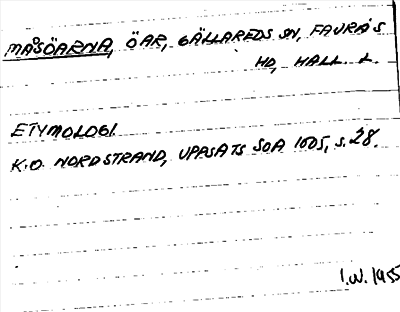 MÅSÖARNA, ÖAR, GÄLLAREDS SN, FAURÅS
HD, HALL. L.
ETYMOLOGI.
K.O. NORDSTRAND, UPPSATS SOA 1005, s. 28.
I.W. 1955